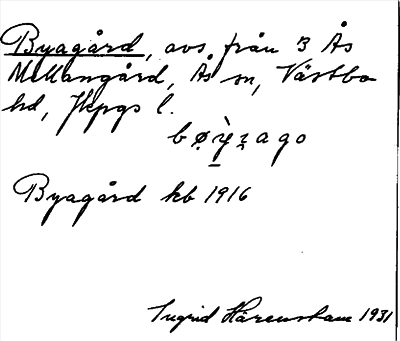 Byagård, avs. från 3 Ås
Mellangård, Ås sn, Västbo
hd, Jkpgs l.
bø̣ỳ̱ẓago
Byagård kb 1916
Ingrid Härenstam 1931